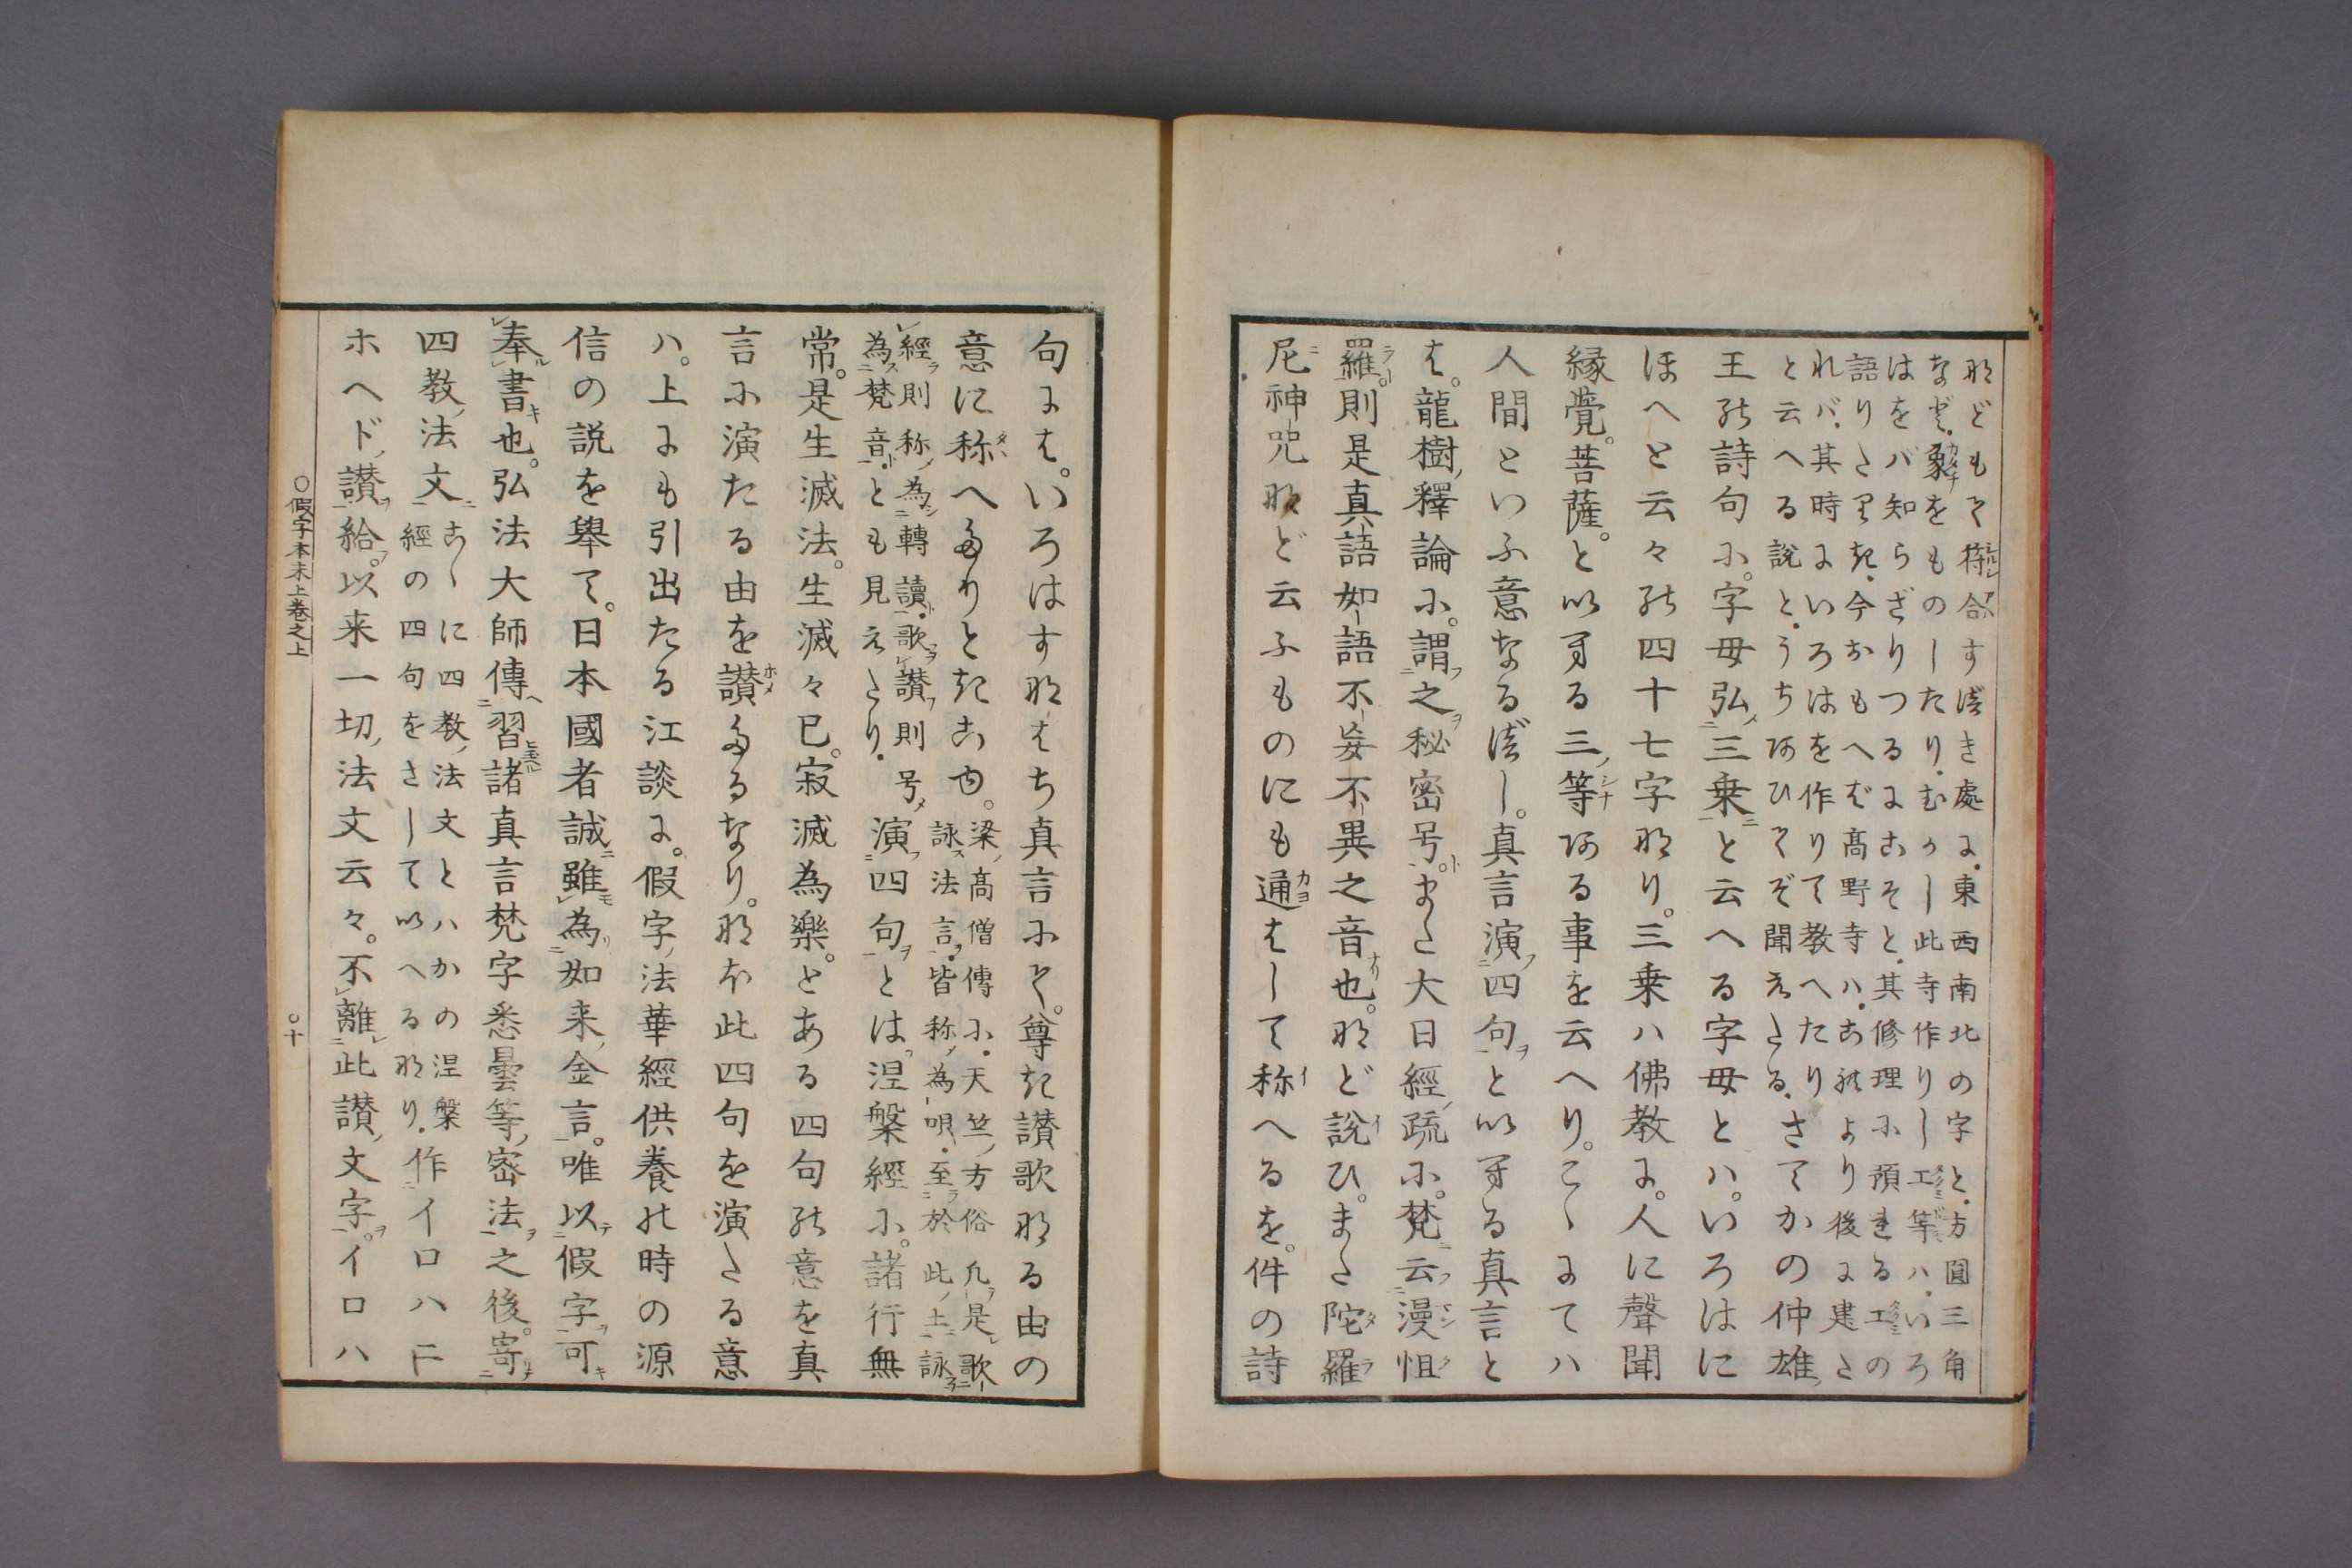 などもて符合すべき處に、東西南北の字と、方圓三角
など、象をものしたり、むかし此寺作りし工等ハ、いろ
はをバ知らざりつるにこそと、其修理に預れる工の
語りたりき、今おもへば高野寺ハ、これより後に建た
れバ、其時にいろはを作りて教へたり
と云へる説と、うちあひてぞ聞えたる、さてかの仲雄
王の詩句に。字母弘三乗と云へる字母とハ。いろはに
ほへと云々の四十七字なり。三乗ハ佛教に。人に聲聞
縁覺。菩薩。と以ある三等ある事を云へり。こゝにてハ
人間といふ意なるべし。真言演四句と以ある真言と
は。龍樹釋論に。謂之秘密号。また大日經疏に。梵云漫怛
羅。則是真語如語不妄不異之音也。など説ひ。また陀羅
尼神咒など云ふものにも通はして称へるを。件の詩
句には。いろはすなはち真言にて。尊き讃歌なる由の
意に称へたりときこゆ。梁高僧傳に、天竺方俗凡是歌
詠法言、皆称為唄、至於此土詠
經則称為轉讀、歌讃則号
為梵音、とも見えたり、演四句とは。涅槃經に。諸行無
常。是生滅法。生滅々已。寂滅為樂。とある四句の意を真
言に演たる由を讃たるなり。なほ此四句を演たる意
ハ。上にも引出たる江談に。假字法華經供養の時の源
信の説を舉て。日本國者誠雖為如来金言。唯以假字可
奉書也。弘法大師傳習諸真言梵字悉曇等密法之後。寄
四教法文こゝに四教法文とハかの涅槃
經の四句をさして以へるなり、作イロハニ
ホヘド讃給。以来一切法文云々。不離此讃文字。イロハ
○假字本末上巻之上
○十